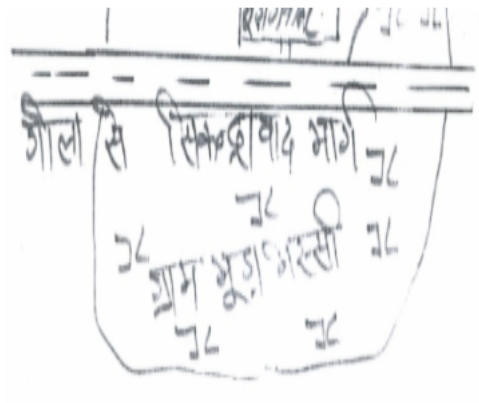 गोला से सिकन्द्राबाद मार्ग
ग्राम मूडा अस्सी